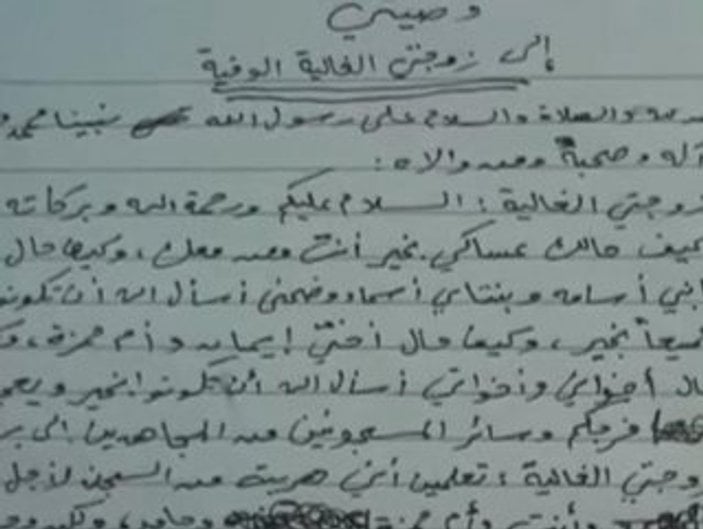 وصيتي
إلى زوجتي الغالية الوفية
والصلاة والسلام على رسول الله نبينا محمد
آله وصحبة ومن والاه :
زوجتي الغالية : السلام عليكم ورحمة الله وبركاته
كيف حالك عساكي بخير أنت ومن معك ، وكيف حال
ابني أسامه وبنتاي أسماء وضحى أسأل الله أن تكونو
جميعاً بخير ، وكيف حال أختي إيمان وأم حمزة ،
حال أخواني وأخواتي أسأل الله أن تكونوا بخير
فرجكم وسائر المسجونين من المجاهدين إلى
زوجتي الغالية ، تعلمين أني هربت من السجن لأجل
وأنت وأم حمزة وحامد ،